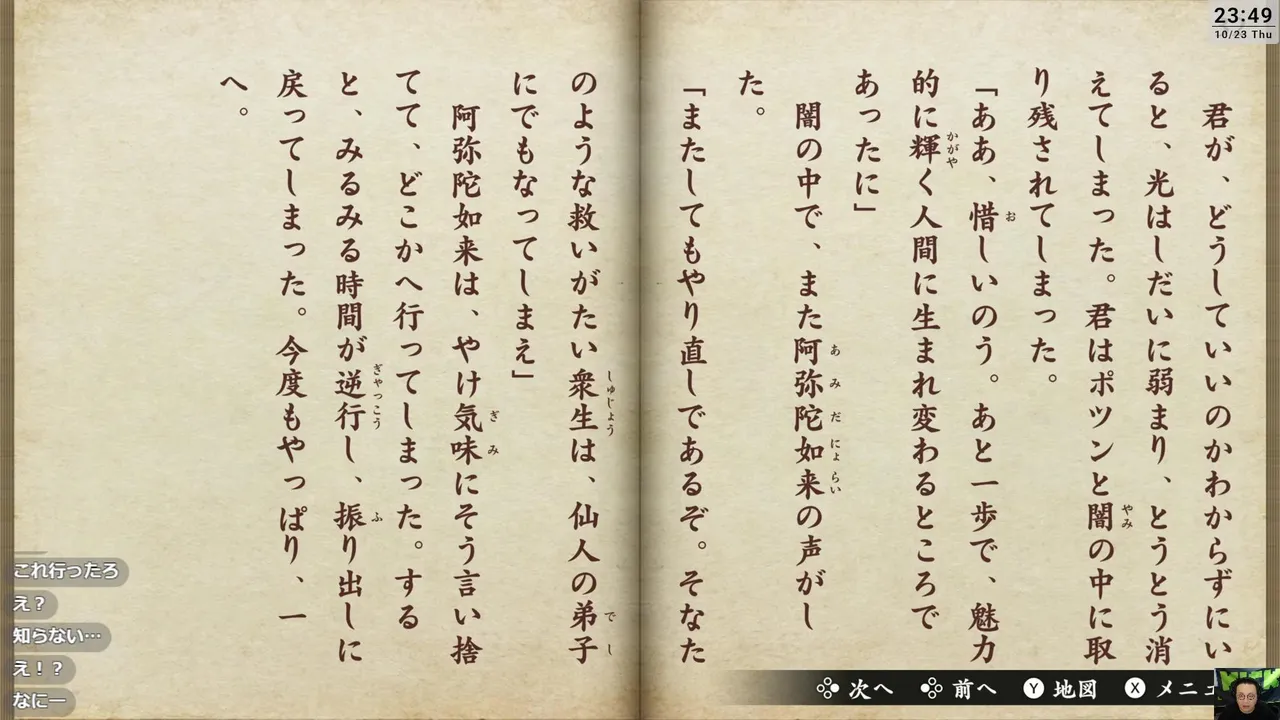 23:49
10/23 Thu
君が、どうしていいのかわからずにい
ると、光はしだいに弱まり、とうとう消
えてしまった。君はポツンと闇の中に取
り残されてしまった。
「ああ、惜しいのう。あと一歩で、魅力
的に輝く人間に生まれ変わるところで
あったに」
闇の中で、また阿弥陀如来の声がし
た。
「またしてもやり直しであるぞ。そなた
のような救いがたい衆生は、仙人の弟子
にでもなってしまえ」
阿弥陀如来は、やけ気味にそう言い捨
てて、どこかへ行ってしまった。する
と、みるみる時間が逆行し、振り出しに
戻ってしまった。今度もやっぱり、一
へ。
これ行ったろ
え？
知らない…
え！？
なにー
次へ 前へ Y 地図 X メニュ